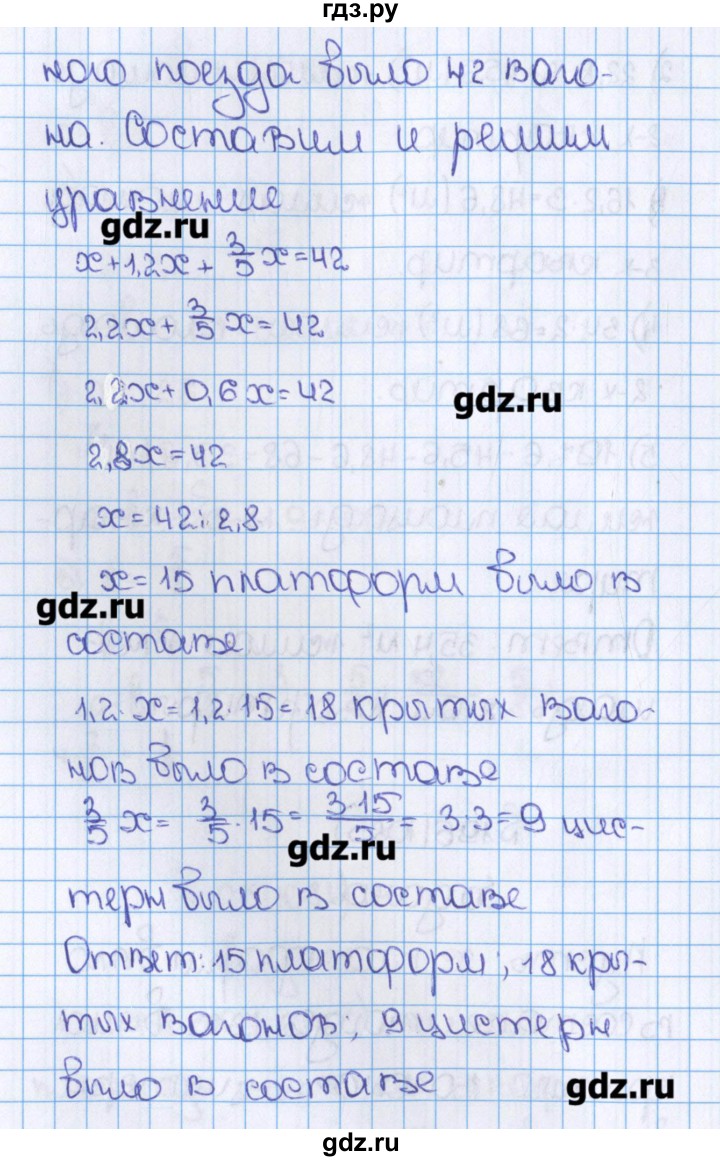 гдз.ру
ного поезда было 42 ваго-
на. Составим и решим
уравнение
gdz.ru
x+1,2x+3/5x=42
2,2x+3/5x=42
2,2x+0,6x=42
gdz.ru
2,8x=42
x=42:2,8
x=15 платформ было в
gdz.ru
составе
1,2·x=1,2·15=18 крытых ваго-
нов было в составе
3/5x=3/5·15=3·15/5=3·3=9 цис-
gdz.ru
терн было в составе
Ответ: 15 платформ; 18 кры-
тых вагонов; 9 цистерн
было в составе
gdz.ru
gdz.ru